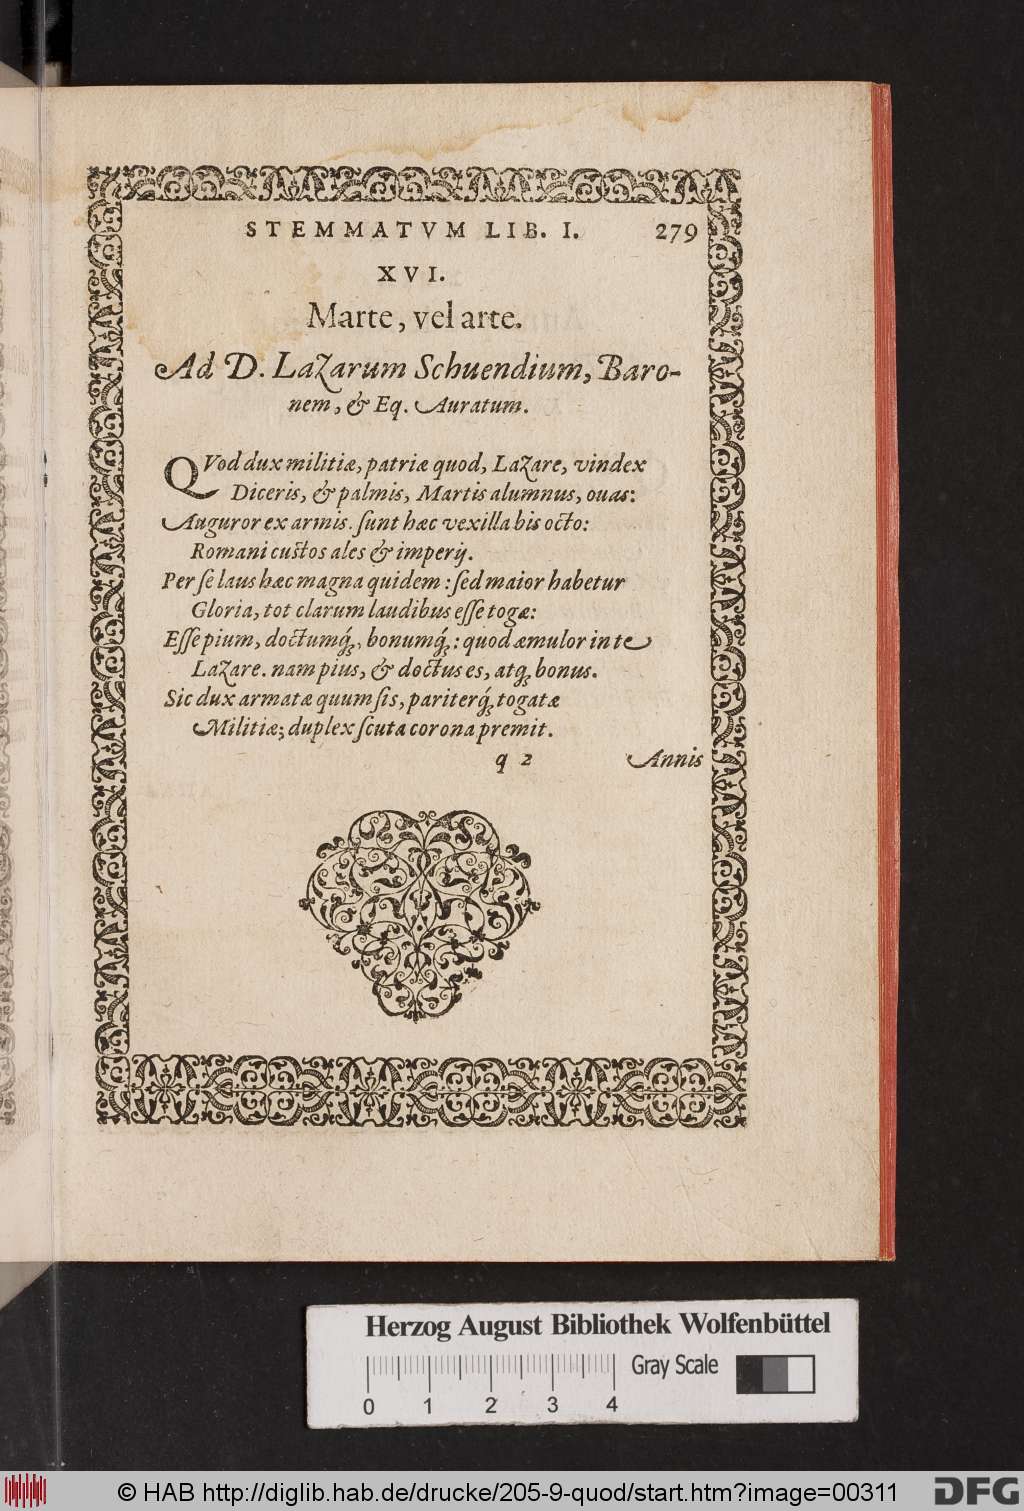 STEMMATVM LIB. I. 279
XVI.
Marte, vel arte.
Ad D. Lazarum Schuendium, Baro-
nem, & Eq. Auratum.
QVod dux militiæ, patriæ quod, Lazare, vindex
Diceris, & palmis, Martis alumnus, ouas:
Auguror ex armis. sunt hæc vexilla bis octo:
Romani custos ales & imperij.
Per se laus hæc magna quidem: sed maior habetur
Gloria, tot clarum laudibus esse togæ:
Esse pium, doctumq́;, bonumq́;: quod æmulor in te
Lazare. nam pius, & doctus es, atq; bonus.
Sic dux armatæ quum sis, pariterq́; togatæ
Militiæ; duplex scuta corona premit.
q 2 Annis
Herzog August Bibliothek Wolfenbüttel
Gray Scale
0 1 2 3 4
© HAB http://diglib.hab.de/drucke/205-9-quod/start.htm?image=00311 DFG